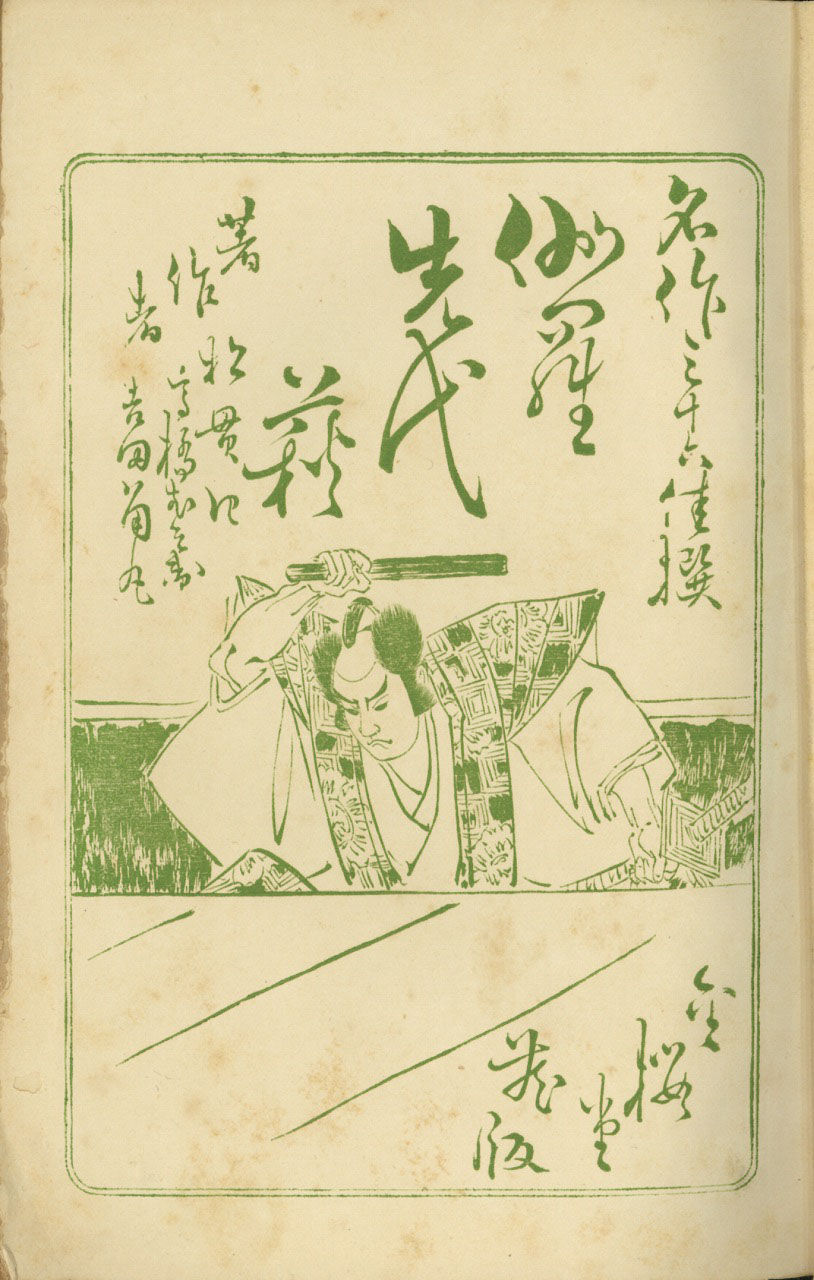 名作三十六佳撰
伽羅
先代
萩
著作者
松貫四
高橋武兵衛
吉田角丸
金桜堂
蔵版